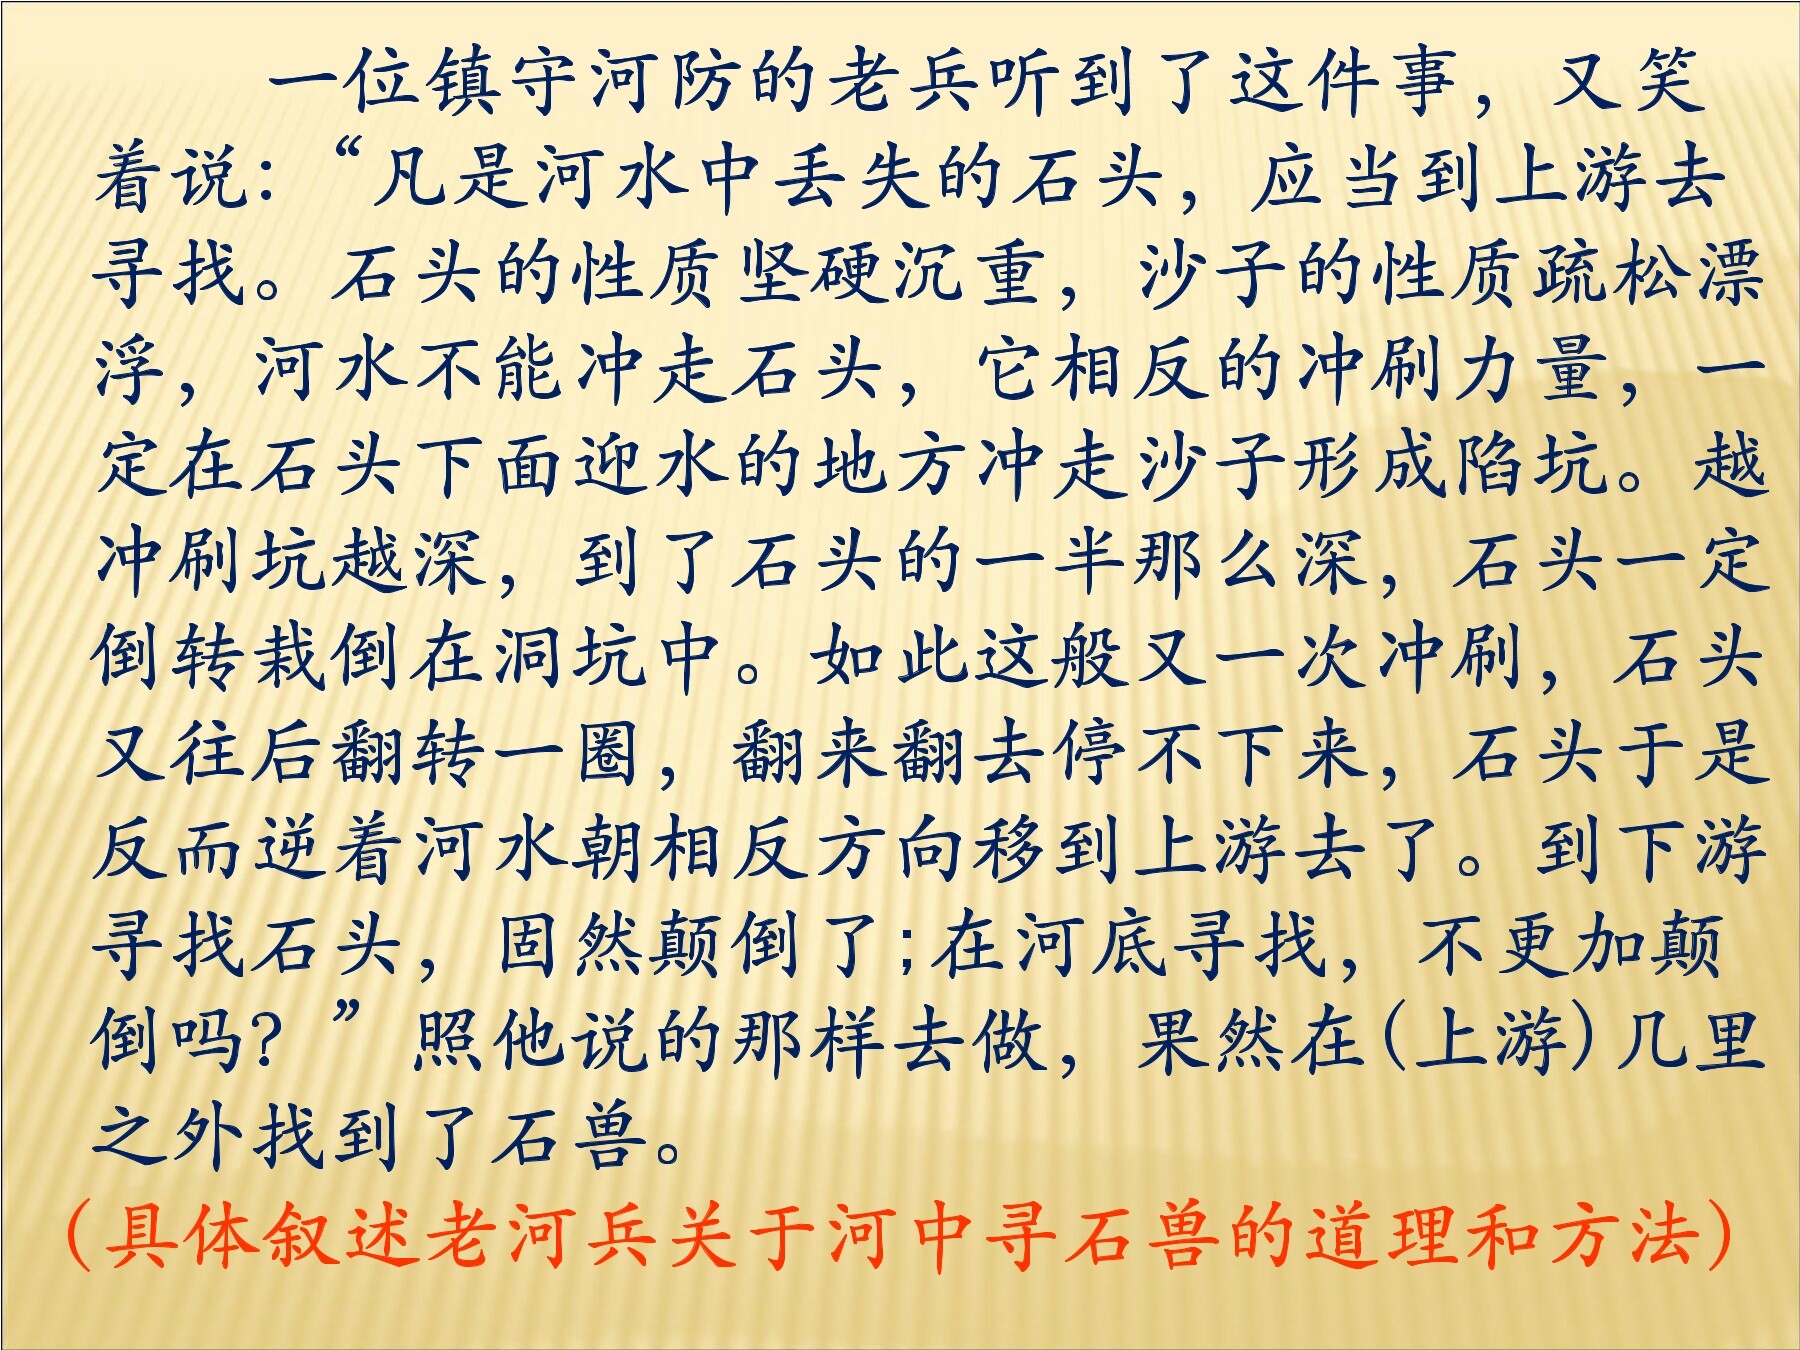 一位镇守河防的老兵听到了这件事，又笑
着说：“凡是河水中丢失的石头，应当到上游去
寻找。石头的性质坚硬沉重，沙子的性质疏松漂
浮，河水不能冲走石头，它相反的冲刷力量，一
定在石头下面迎水的地方冲走沙子形成陷坑。越
冲刷坑越深，到了石头的一半那么深，石头一定
倒转栽倒在洞坑中。如此这般又一次冲刷，石头
又往后翻转一圈，翻来翻去停不下来，石头于是
反而逆着河水朝相反方向移到上游去了。到下游
寻找石头，固然颠倒了;在河底寻找，不更加颠
倒吗？”照他说的那样去做，果然在(上游)几里
之外找到了石兽。
（具体叙述老河兵关于河中寻石兽的道理和方法）